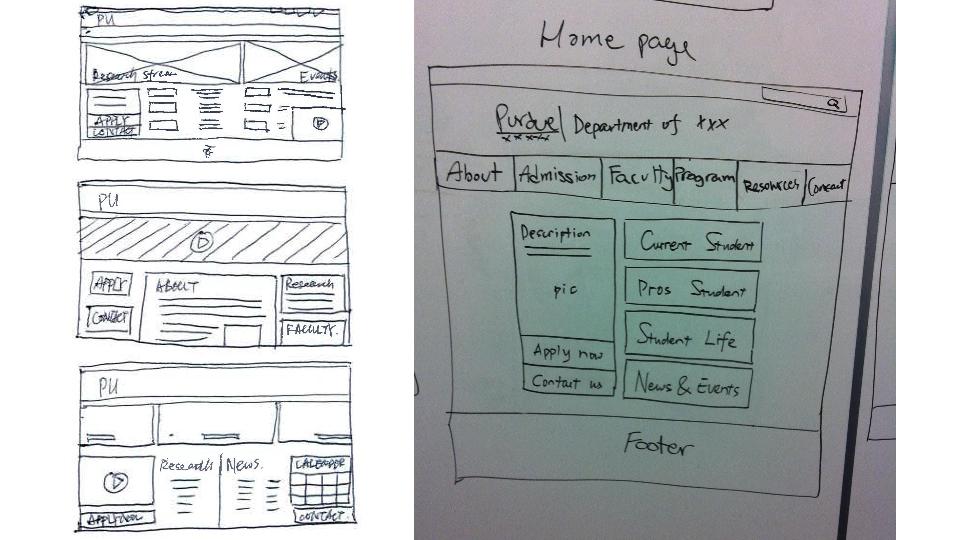 PU
Research stream
Events
APPLY
CONTACT
PU
APPLY
CONTACT
ABOUT
Research
FACULTY.
PU
Research
News.
CALENDAR
APPLY NOW
CONTACT.
Home page
Purdue
xxxxx
Department of xxx
About
Admission
Faculty
Program
Resources
Contact
Description
pic
Apply now
Contact us
Current Student
Pros Student
Student Life
News & Events
Footer